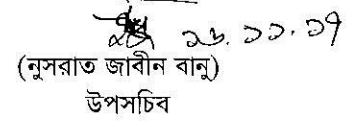 ২৬.১১.১৭
(নুসরাত জাবীন বানু)
উপসচিব